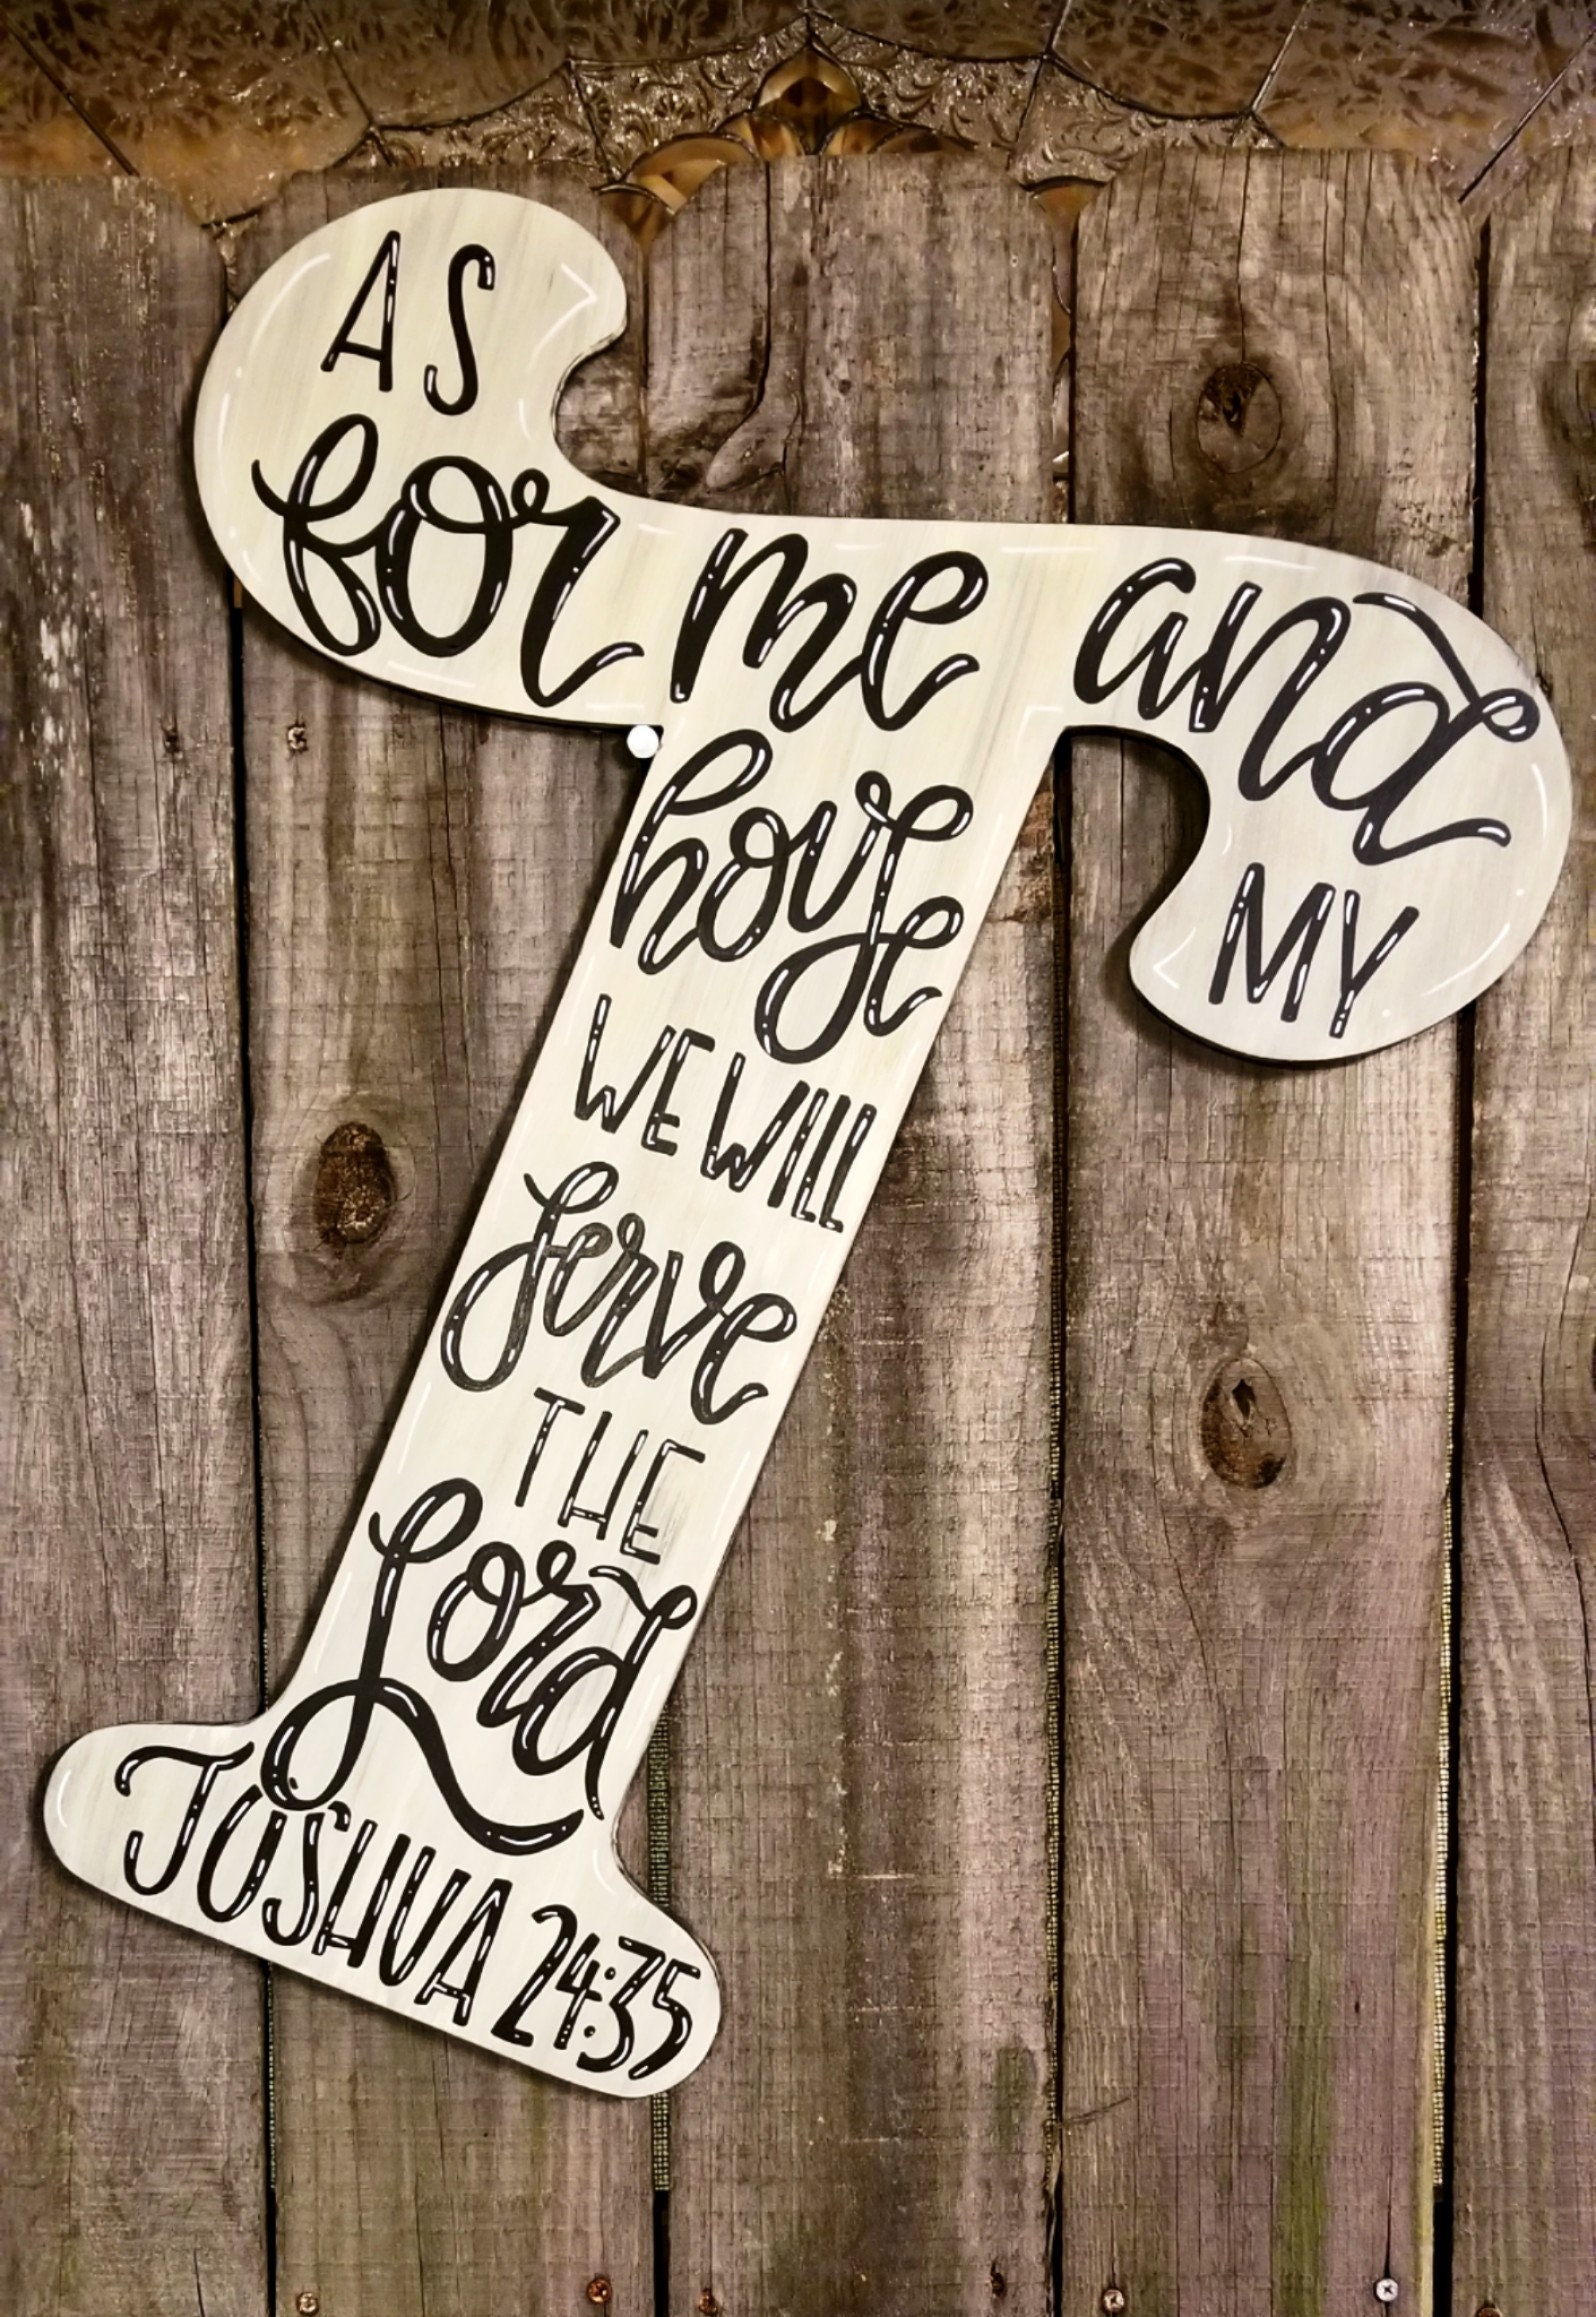 AS
for me and
MY
house
WE WILL
serve
THE
Lord
JOSHUA 24:35